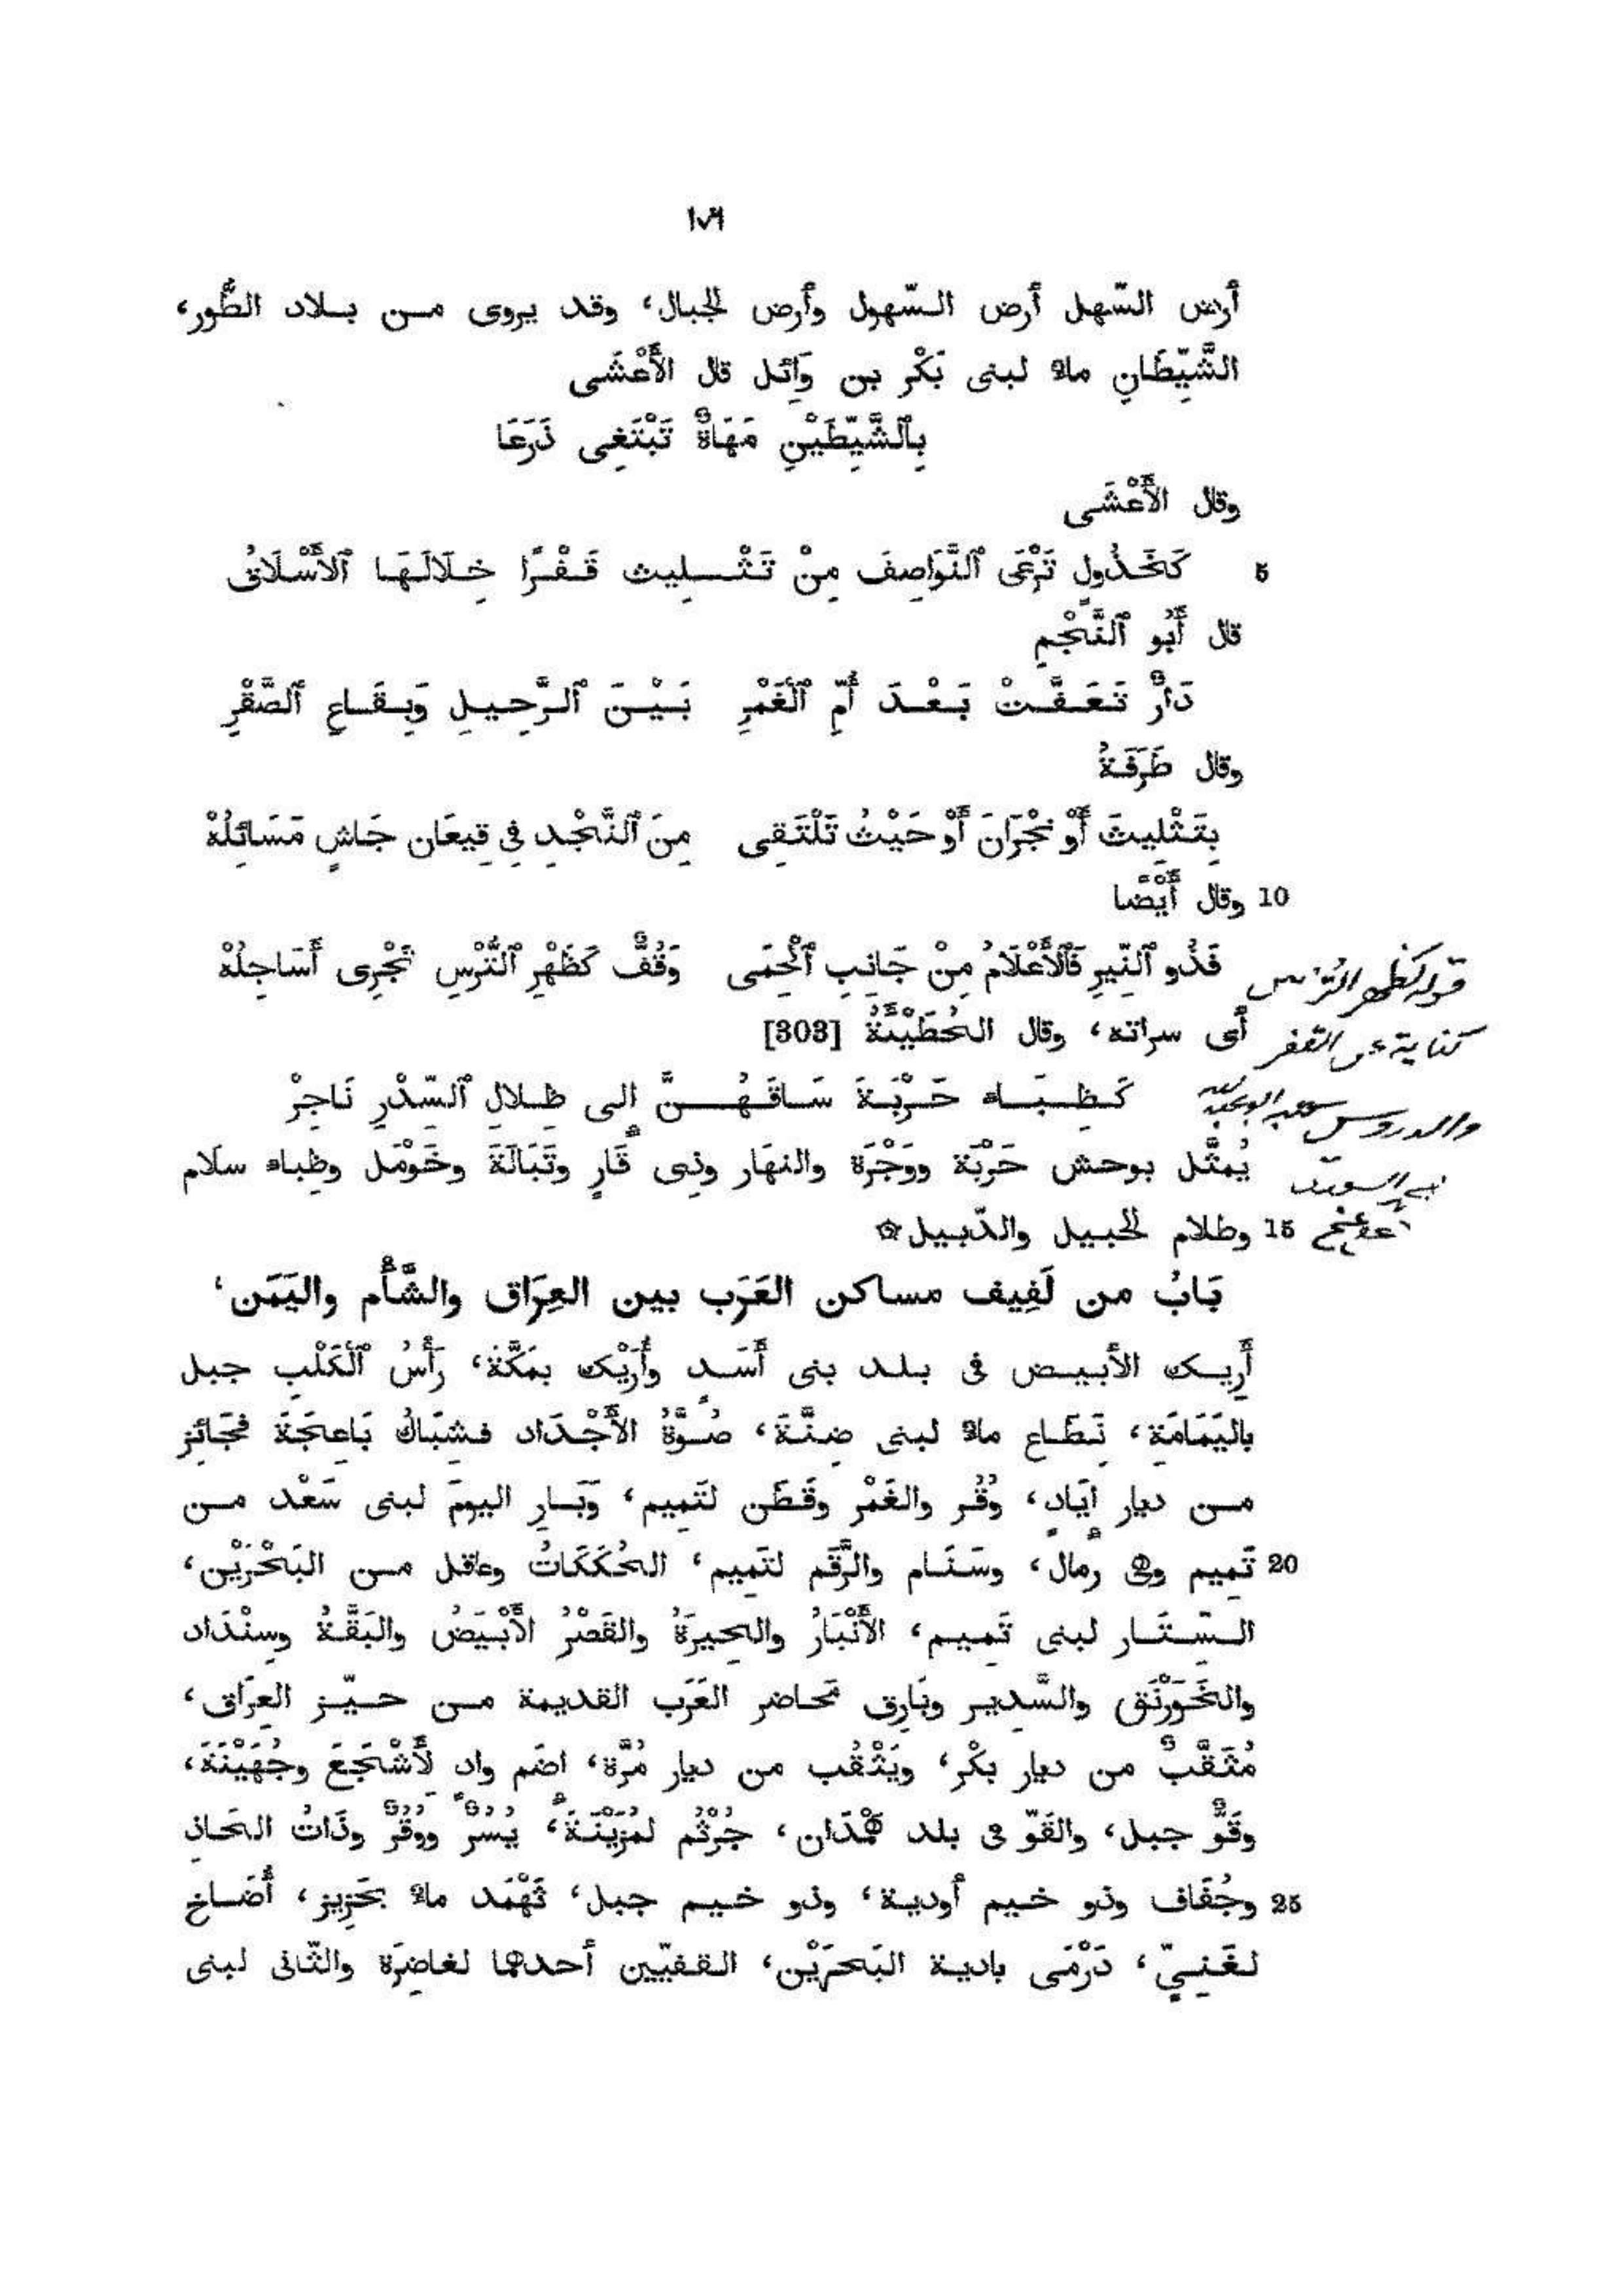 ١٧٦
أرض السّهل أرض السّهول وأرض الجبال، وقد يروى من بلاد الطُّور،
الشَّيِّطَانِ ماءٌ لبنى بَكْر بن وَائل قال الأَعْشَى
بِٱلشَّيِّطَيْنِ مَهَاةٌ تَبْتَغِى ذَرَعَا
وقال الأَعْشَى
5 كَخَذُولٍ تَرْعَى ٱلنَّوَاصِفَ مِنْ تَثْلِيث قَفْرًا خِلَالَهَا ٱلأَسْلَاقُ
قال أَبُو ٱلنَّجْمِ
دَارٌ تَعَفَّتْ بَعْدَ أُمِّ ٱلْغَمْرِ بَيْنَ ٱلرَّحِيلِ وَبِقَاعِ ٱلصَّقْرِ
وقال طَرَفَةُ
بِتَثْلِيثَ أَوْ نَجْرَانَ أَوْ حَيْثُ تَلْتَقِى مِنَ ٱلنَّجْدِ فِى قِيعَان جَاشٍ مَسَائِلُهْ
10 وقال أَيْضًا
فَذُو ٱلنِّيرِ فَٱلأَعْلَامُ مِنْ جَانِبِ ٱلْحِمَى وَقُفٌّ كَظَهْرِ ٱلتُّرْسِ تَجْرِى أَسَاجِلُهْ
قوله كظهر الترس
أى سراته، وقال الحُطَيْئَةُ [303]
كناية عن القفر
كَظِبَاء حَرْبَةَ سَاقَهُنَّ إلى ظِلالِ ٱلسِّدْرِ نَاجِرْ
والدروس
يُمثَّل بوحش حَرْبَة ووَجْرَة والنهَار وذِى قَارٍ وتَبَالَةَ وخَوْمَل وظِباء سلَام
15 وظلام الحبيل والدّبيل۞
بَابُ من لَفِيف مساكن العَرَب بين العِرَاق والشَّأْم واليَمَن،
أَرِيك الأبيض فى بلد بنى أَسَدٍ وأُرَيْك بمَكَّةَ، رَأْسُ ٱلْكَلْبِ جبل
باليَمَامَة، نَطَاع ماءٌ لبنى ضِنَّةَ، صُوَّةُ الأَجْدَاد فشِبَاكُ بَاعِجَةَ فجَائز
من ديار إيَادٍ، وُقُر والغَمْر وقَطَن لتَمِيم، وَبَارِ اليومَ لبنى سَعْد من
20 تَمِيم وهى رمال، وسَنَام والرَّقَم لتَمِيم، الحُكَكَاتُ وعاقل من البَحْرَيْن،
السِّتَار لبنى تَمِيم، الأَنْبَارُ والحِيرَةُ والقَصْرُ الأَبْيَضُ والبَقَّةُ وسِنْدَاد
والخَوَرْنَق والسَّدِير وبَارِق مَحاضر العَرَب القديمة من حيّز العِرَاق،
مُثَقَّبٌ من ديار بكْر، ويَثْقُب من ديار مُرَّة، إضَم وادٍ لِأَشْجَعَ وجُهَيْنَةَ،
وقَوٌّ جبل، والقَوّ فى بلد هَمْدَان، جُرْثُم لمُزَيْنَةَ، يُسُرٌ ووُقُرٌ وذَاتُ الحَاذِ
25 وجُفَاف وذو خيم أودية، وذو خيم جبل، ثَهْمَد ماءٌ بحَزِيز، أُضَاخ
لغَنِىٍّ، دَرْمَى بادية البَحرَيْن، القفيّين أحدهما لغاضِرَة والثّانى لبنى